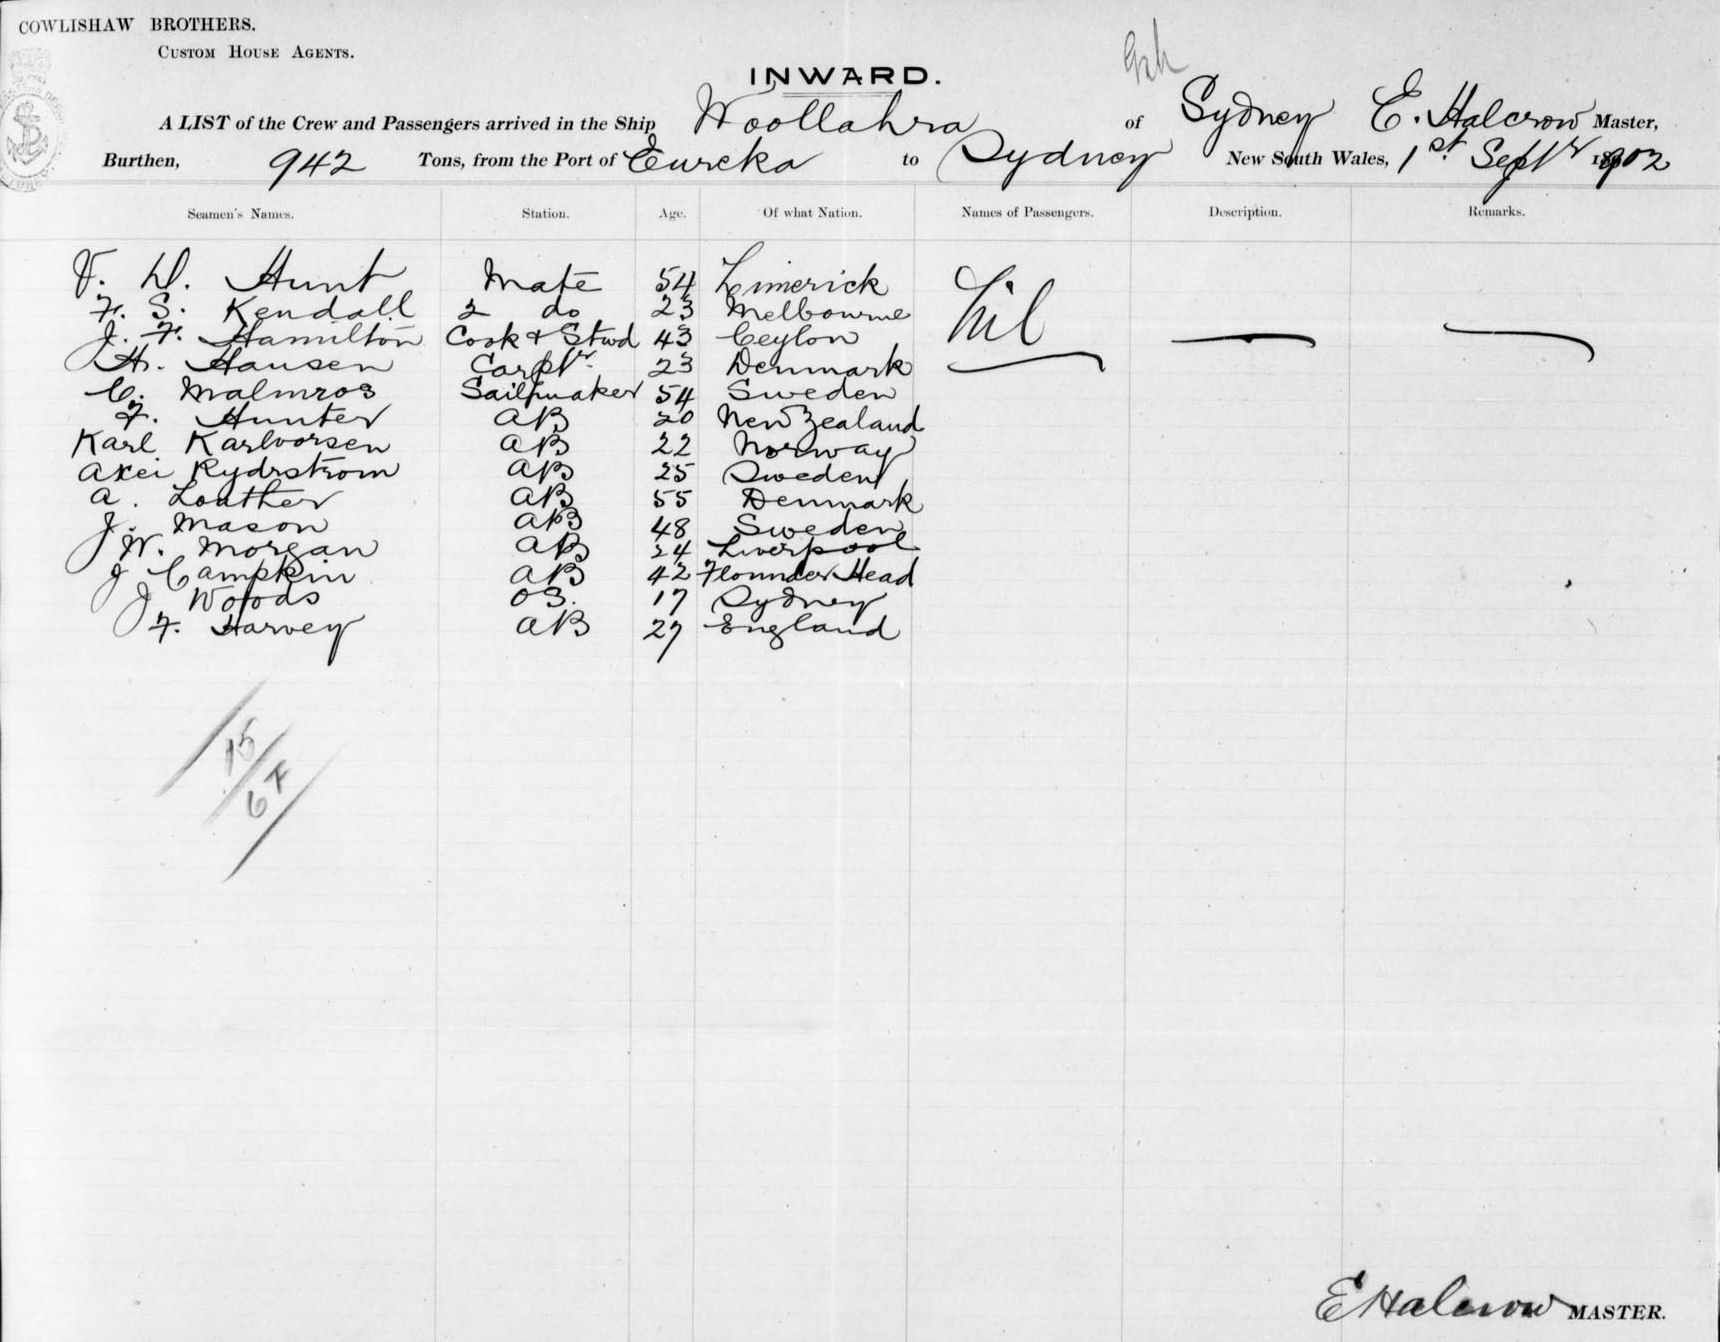 COWLISHAW BROTHERS.
CUSTOM HOUSE AGENTS.
INWARD.
A LIST of the Crew and Passengers arrived in the Ship Woollahra of Sydney E. Halcrow Master,
Burthen, 942 Tons, from the Port of Eureka to Sydney New South Wales, 1st Septr 1902
Seamen's Names. Station. Age. Of what Nation. Names of Passengers. Description. Remarks.
V. D. Hunt Mate 54 Limerick Nil
F. S. Kendall 2 do 23 Melbourne
J. F. Hamilton Cook & Stwd 43 Ceylon
H. Hansen Carptr 23 Denmark
C. Malmros Sailmaker 54 Sweden
F. Hunter AB 20 New Zealand
Karl Karlvorsen AB 22 Norway
Axei Rydrstrom AB 25 Sweden
A. Louther AB 55 Denmark
J. Mason AB 48 Sweden
J W. Morgan AB 24 Liverpool
J Campkin AB 42 Flounder Head
J Woods OS. 17 Sydney
F. Harvey AB 27 England
15
6 F
E Halcrow MASTER.